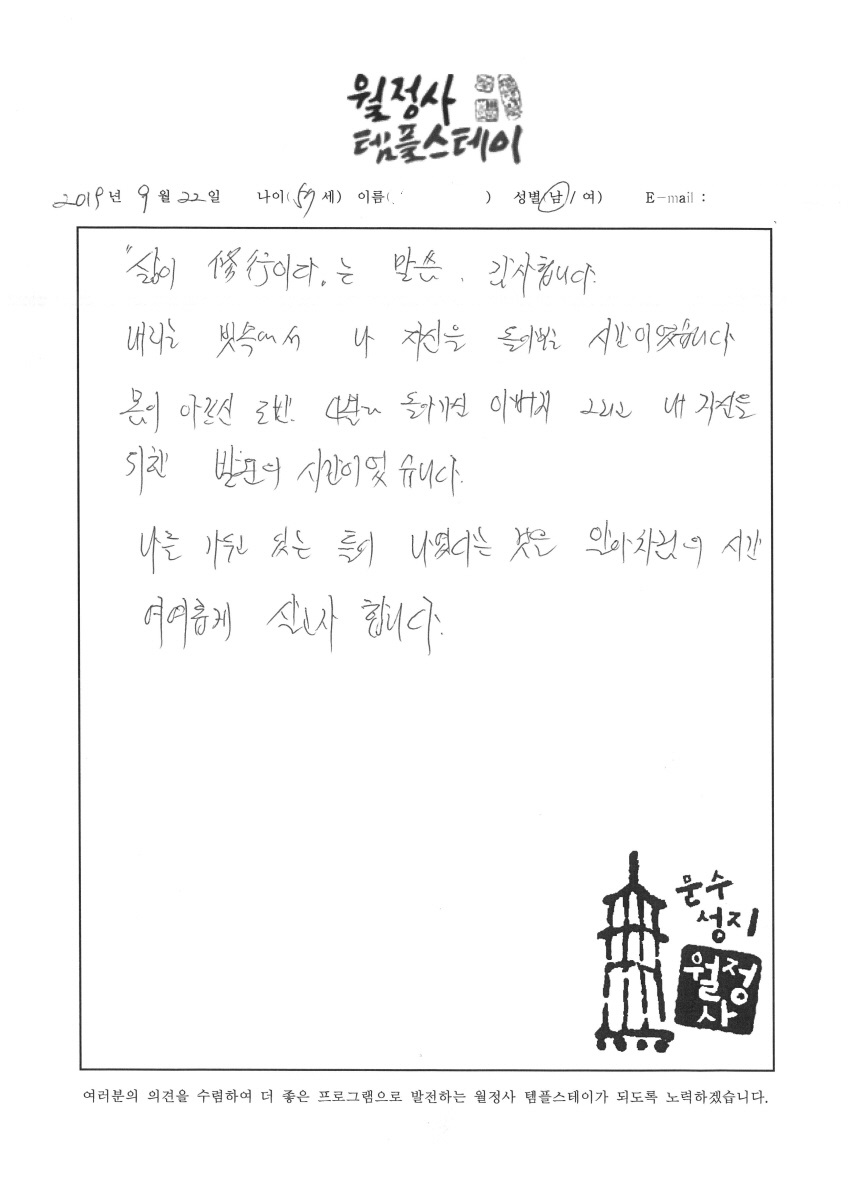 월정사
템플스테이
2019년 9월 22일 나이(57세) 이름( ) 성별(남/여) E-mail :
"삶이 修行이다"는 말씀, 감사합니다.
내리는 빗속에서 나 자신을 돌아보는 시간이였습니다
몸이 아프신 모친. 돌아가신 아버지 그리고 내 자신을
위한 발원의 시간이었습니다.
나를 가두고 있는 틀이 나였다는 것을 알아차림의 시간
여여롭게 살고자 합니다.
문수
성지
월정
사
여러분의 의견을 수렴하여 더 좋은 프로그램으로 발전하는 월정사 템플스테이가 되도록 노력하겠습니다.